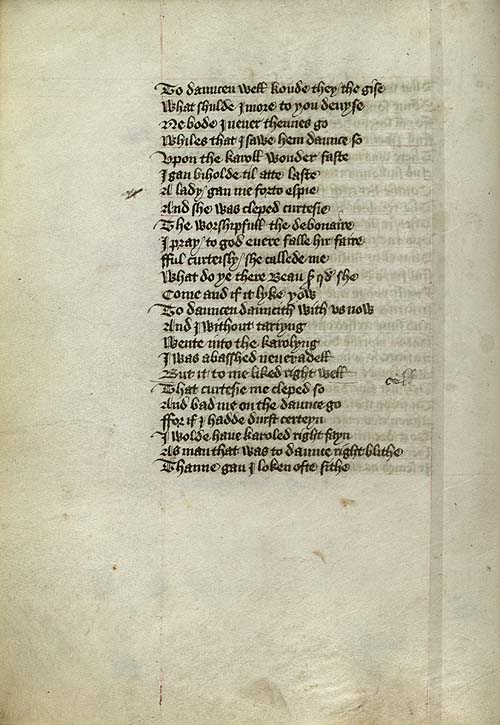 To dauncen well koude they the gise
What shulde I more to you devyse
Ne bode I never thennes go
Whiles that I sawe hem daunce so
Upon the karoll wonder faste
I gan biholde til atte laste
A lady gan me forto espie
And she was cleped curtesie
The worshipfull the debonaire
I pray to god evere falle hir faire
Ful curteisly she callede me
What do ye there Beau sire qd she
Come and if it lyke yow
To dauncen daunceth with us now
And I without tariyng
Wente into the karolyng
I was abasshed never a dell
But it to me liked right well
That curtesie me cleped so
And bad me on the daunce go
ffor if I hadde durst certeyn
I wolde have karoled right fayn
As man that was to daunce right blithe
Thanne gan I loken ofte sithe